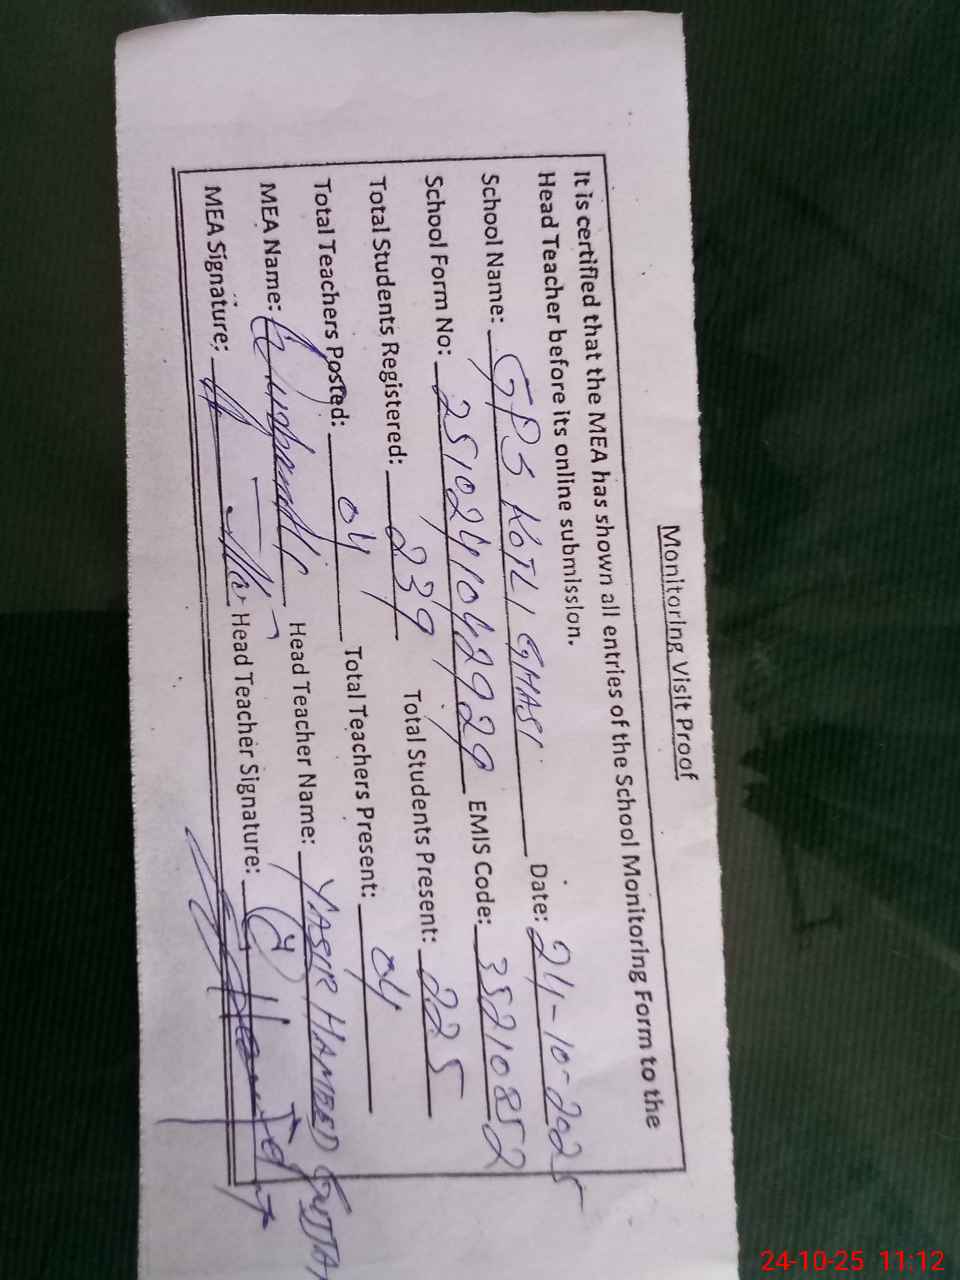 Monitoring Visit Proof
It is certified that the MEA has shown all entries of the School Monitoring Form to the
Head Teacher before its online submission.
School Name: GPS KOTLI GHASI Date: 24-10-2025
School Form No: 2510241042929 EMIS Code: 35210852
Total Students Registered: 239 Total Students Present: 225
Total Teachers Posted: 04 Total Teachers Present: 04
MEA Name: Head Teacher Name: YASIR HAMEED GUJJAR
MEA Signature: Head Teacher Signature:
24-10-25 11:12